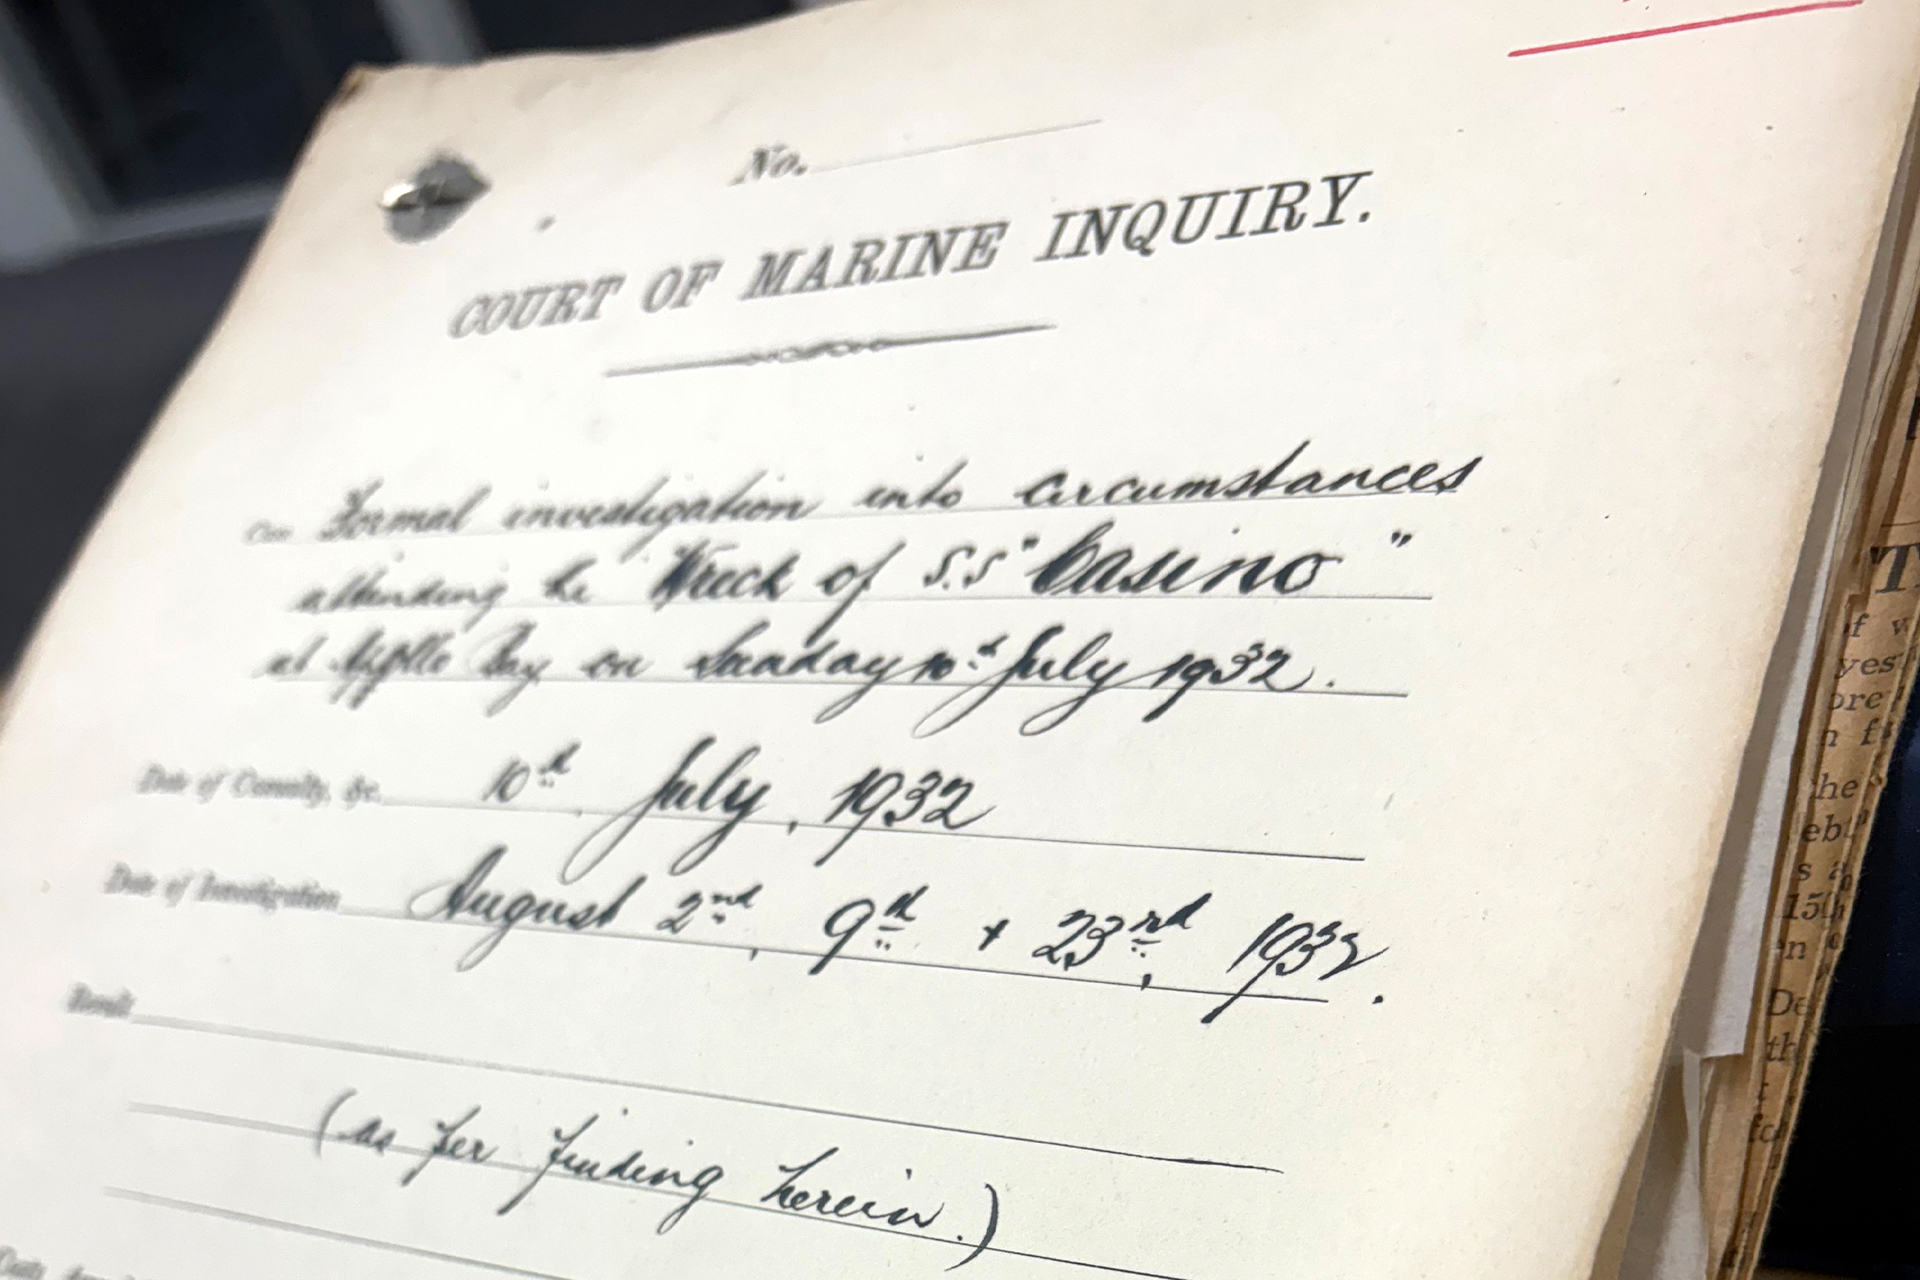 No.
COURT OF MARINE INQUIRY.
Case Formal investigation into circumstances
attending the Wreck of S.S "Casino"
at Apollo Bay on Sunday 10th July 1932.
Date of Casualty, &c. 10th July, 1932
Date of Investigation August 2nd, 9th + 23rd, 1932.
Result
(as per finding herein.)
T
f w
yes
ore
n f
he
eb
s a
15th
en
De
th
fo